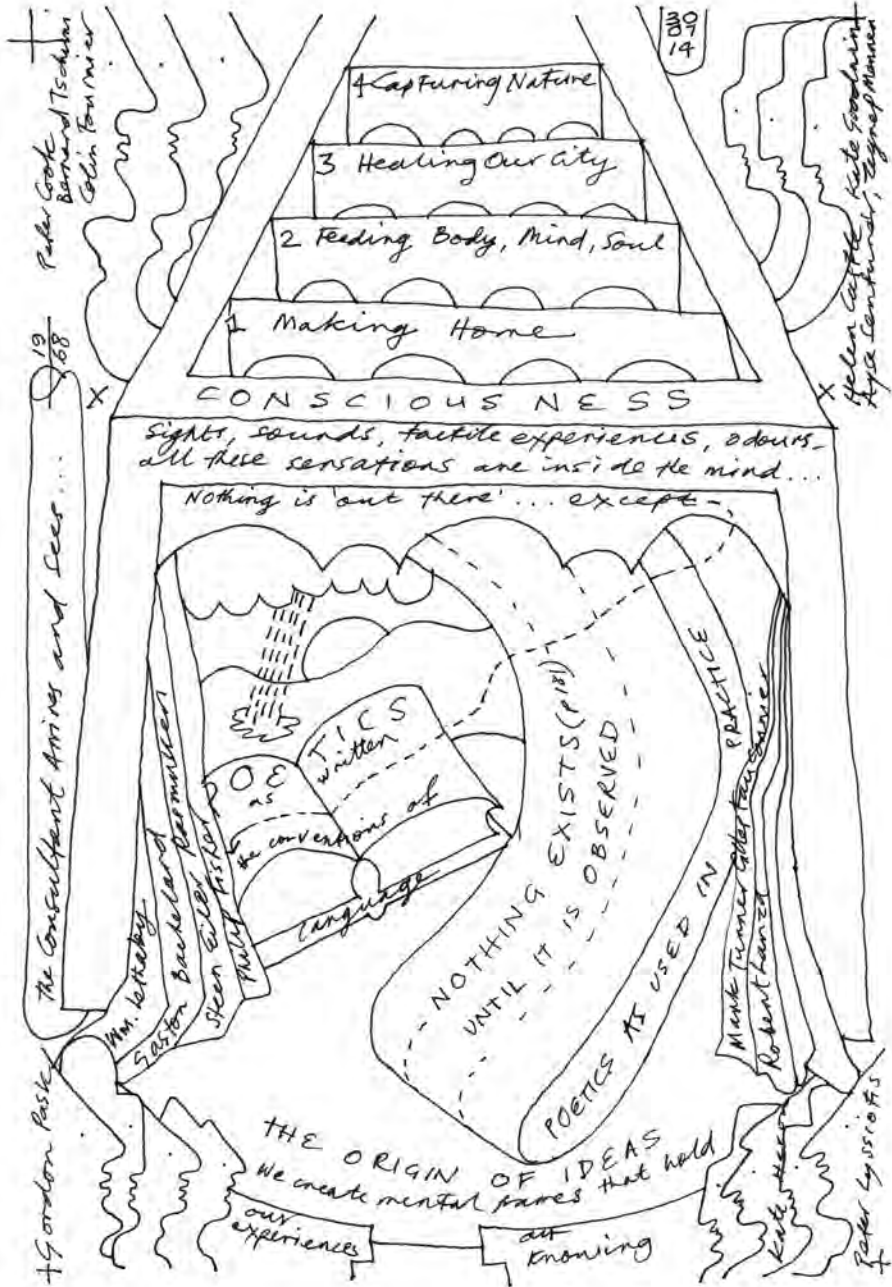 Peter Cook
Bernard Tschumi
Colin Fournier
30
07
14
4 Capturing Nature
3 Healing Our City
2 Feeding Body, Mind, Soul
1 Making Home
Helen Castle, Kate Goodwin
Ayse Senturer,
19
68
X
X
CONSCIOUSNESS
sights, sounds, tactile experiences, odours -
all these sensations are inside the mind...
Nothing is 'out there' ... except -
the Consultant Arrives and sees...
Wm. Lethaby
Gaston Bachelard
Steen Eiler Rasmussen
Philip Fisher
POETICS
as written
the conventions of
language
NOTHING EXISTS (p181)
UNTIL IT IS OBSERVED
POETICS AS USED IN PRACTICE
Mark Turner Gilles Fauconnier
Robert Lanza
Gordon Pask
THE ORIGIN OF IDEAS
We create mental frames that hold
our
experiences
our
Knowing
Kate Herd
Peter Lyssiotis